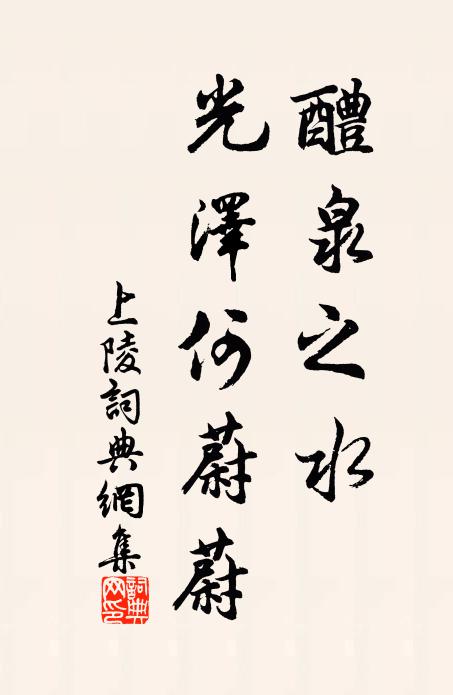 醴泉之水
光澤何蔚蔚
上陵詞典網集
詞典網印